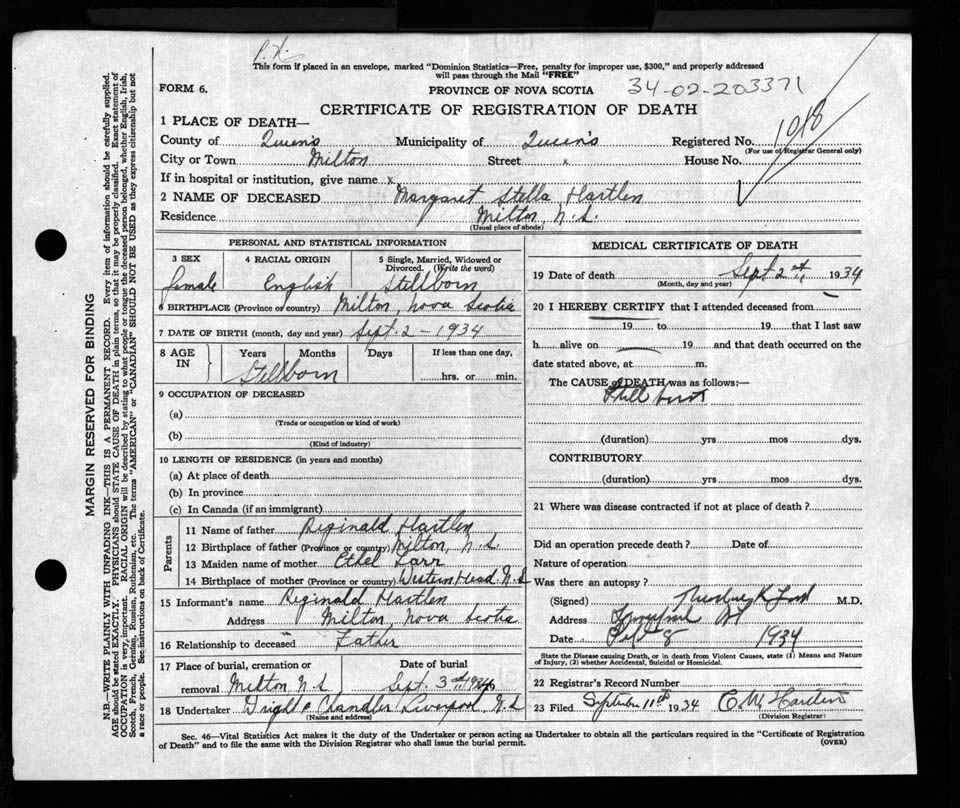 This form if placed in an envelope, marked "Dominion Statistics—Free, penalty for improper use, $300," and properly addressed
will pass through the Mail "FREE"
FORM 6.
PROVINCE OF NOVA SCOTIA
34-02-203371
CERTIFICATE OF REGISTRATION OF DEATH
1 PLACE OF DEATH—
1018
County of Queen's Municipality of Queen's Registered No.
(For use of Registrar General only)
City or Town Milton Street x House No.
If in hospital or institution, give name x
2 NAME OF DECEASED Margaret Stella Hartlen
Residence Milton, N.S.
(Usual place of abode)
PERSONAL AND STATISTICAL INFORMATION
3 SEX 4 RACIAL ORIGIN 5 Single, Married, Widowed or Divorced. (Write the word)
female English Stillborn
6 BIRTHPLACE (Province or country) Milton, Nova Scotia
7 DATE OF BIRTH (month, day and year) Sept. 2 - 1934
8 AGE IN Years Months Days If less than one day,
Stillborn hrs. or min.
9 OCCUPATION OF DECEASED
(a)
(Trade or occupation or kind of work)
(b)
(Kind of industry)
10 LENGTH OF RESIDENCE (in years and months)
(a) At place of death
(b) In province
(c) In Canada (if an immigrant)
Parents
11 Name of father Reginald Hartlen
12 Birthplace of father (Province or country) Milton, N.S
13 Maiden name of mother Ethel
14 Birthplace of mother (Province or country) Western Head. N.S
15 Informant's name Reginald Hartlen
Address Milton, Nova Scotia
16 Relationship to deceased Father
17 Place of burial, cremation or removal Milton N.S
Date of burial Sept. 3 1934
18 Undertaker Chandler Liverpool N.S
(Name and address)
MEDICAL CERTIFICATE OF DEATH
19 Date of death Sept 2 1934
(Month, day and year)
20 I HEREBY CERTIFY that I attended deceased from
19 to 19 that I last saw
h alive on 19 and that death occurred on the
date stated above, at m.
The CAUSE of DEATH was as follows:—
Still birth
(duration) yrs mos dys.
CONTRIBUTORY
(duration) yrs mos dys.
21 Where was disease contracted if not at place of death?
Did an operation precede death? Date of
Nature of operation
Was there an autopsy?
(Signed) M.D.
Address
Date Sept 8 1934
State the Disease causing Death, or in death from Violent Causes, state (1) Means and Nature
of Injury, (2) whether Accidental, Suicidal or Homicidal.
22 Registrar's Record Number
23 Filed September 11th 1934 C.W.
(Division Registrar)
Sec. 46—Vital Statistics Act makes it the duty of the Undertaker or person acting as Undertaker to obtain all the particulars required in the "Certificate of Registration
of Death" and to file the same with the Division Registrar who shall issue the burial permit.
(OVER)
MARGIN RESERVED FOR BINDING
N.B.—WRITE PLAINLY WITH UNFADING INK—THIS IS A PERMANENT RECORD. Every item of information should be carefully supplied.
AGE should be stated EXACTLY. PHYSICIANS should STATE CAUSE OF DEATH in plain terms, so that it may be properly classified. Exact statement of
OCCUPATION is very important. RACIAL ORIGIN will be described by stating to what people or tongue the deceased person belonged, whether English, Irish,
Scotch, French, German, Russian, Ruthenian, etc. The terms "AMERICAN" or "CANADIAN" SHOULD NOT BE USED as they express citizenship but not
a race or people. See instructions on back of Certificate.